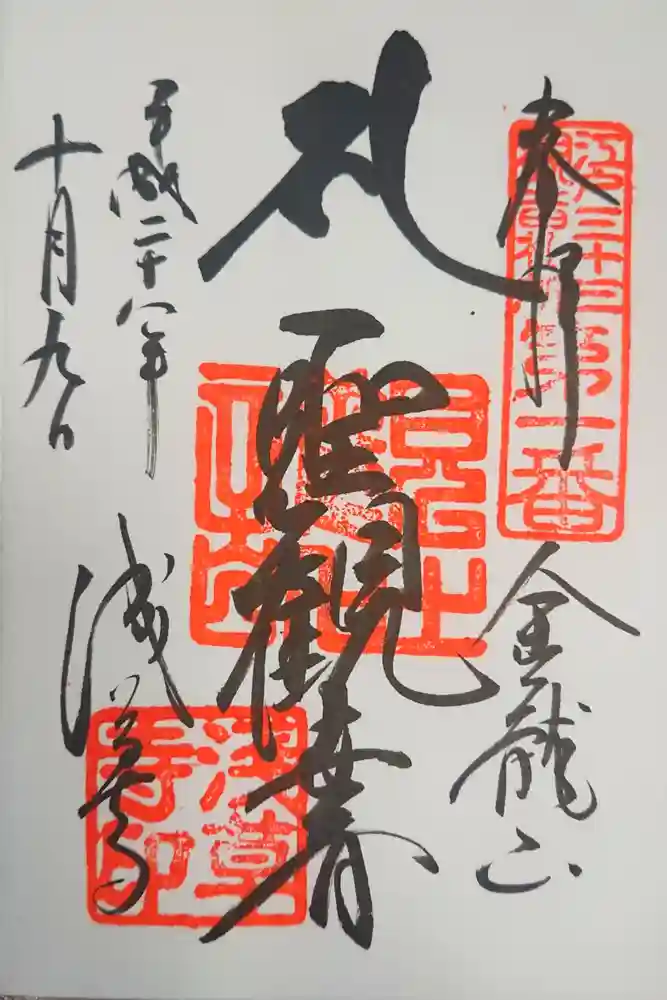 奉拝
江戸三十三
観音札所第一番
金龍山
聖観世音
平成二十八年
十月九日
浅草寺
浅草
寺印